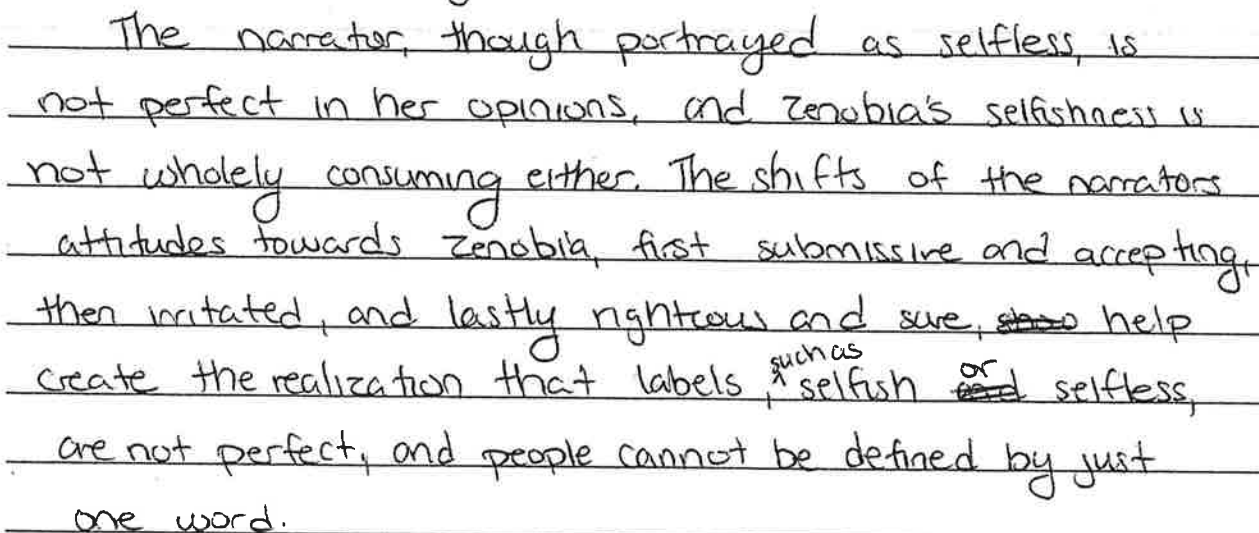 The narrator, though portrayed as selfless, is
not perfect in her opinions, and Zenobia's selfishness is
not wholely consuming either. The shifts of the narrators
attitudes towards Zenobia, first submissive and accepting,
then irritated, and lastly righteous and sure, help
create the realization that labels, such as selfish or selfless,
are not perfect, and people cannot be defined by just
one word.